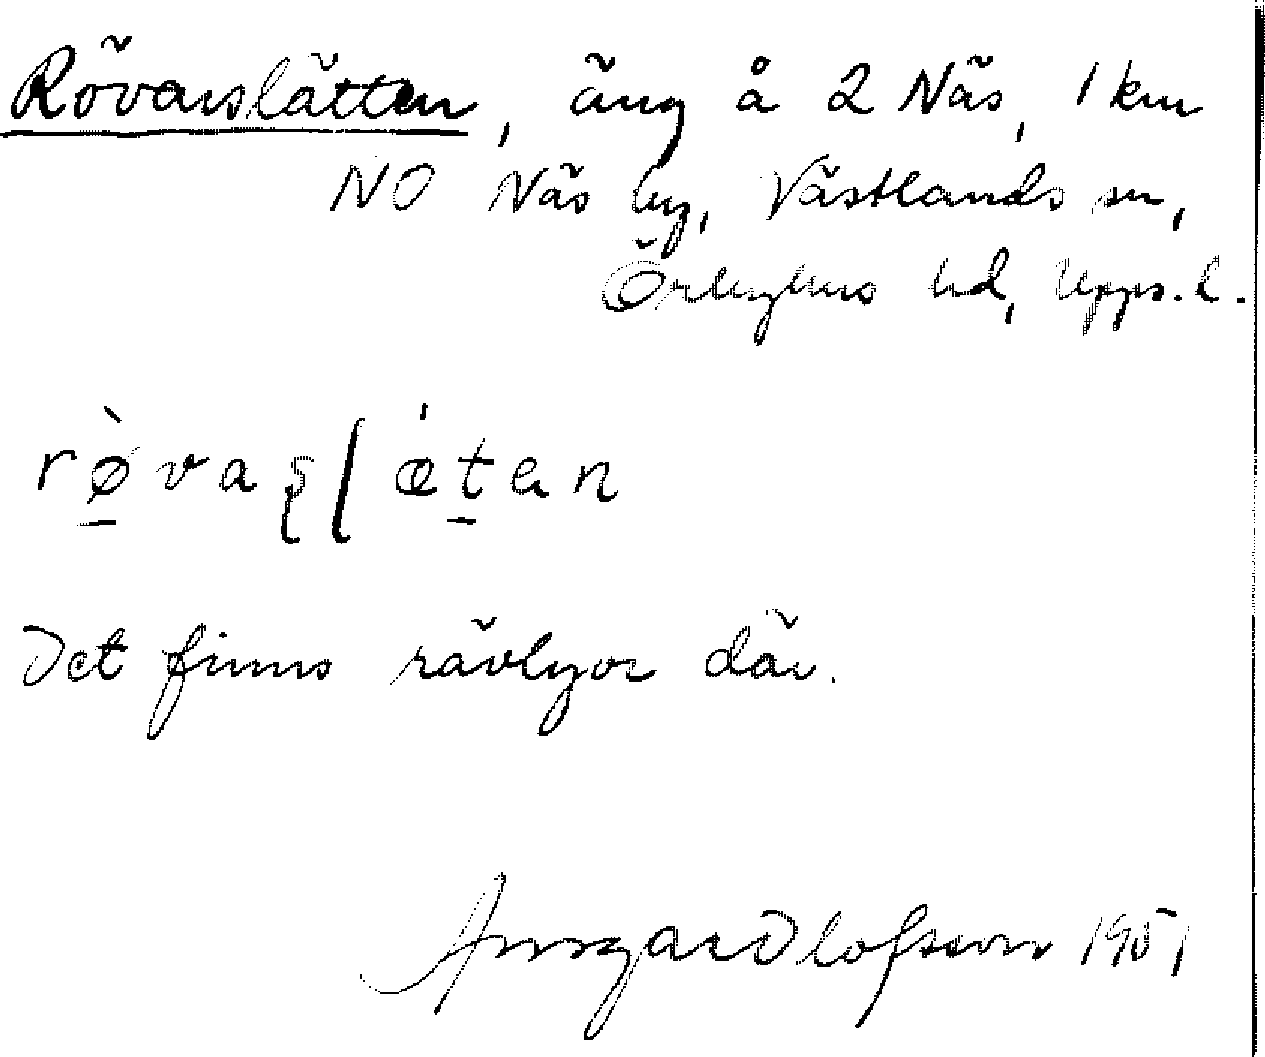 Rövarslätten, äng å 2 Näs, 1 km
NO Näs by, Västlands sn,
Örbyhus hd, Upps. l.
rø̀vaʂɭætan
Det finns rävlyor där.
Ansgar Olofsson 1951